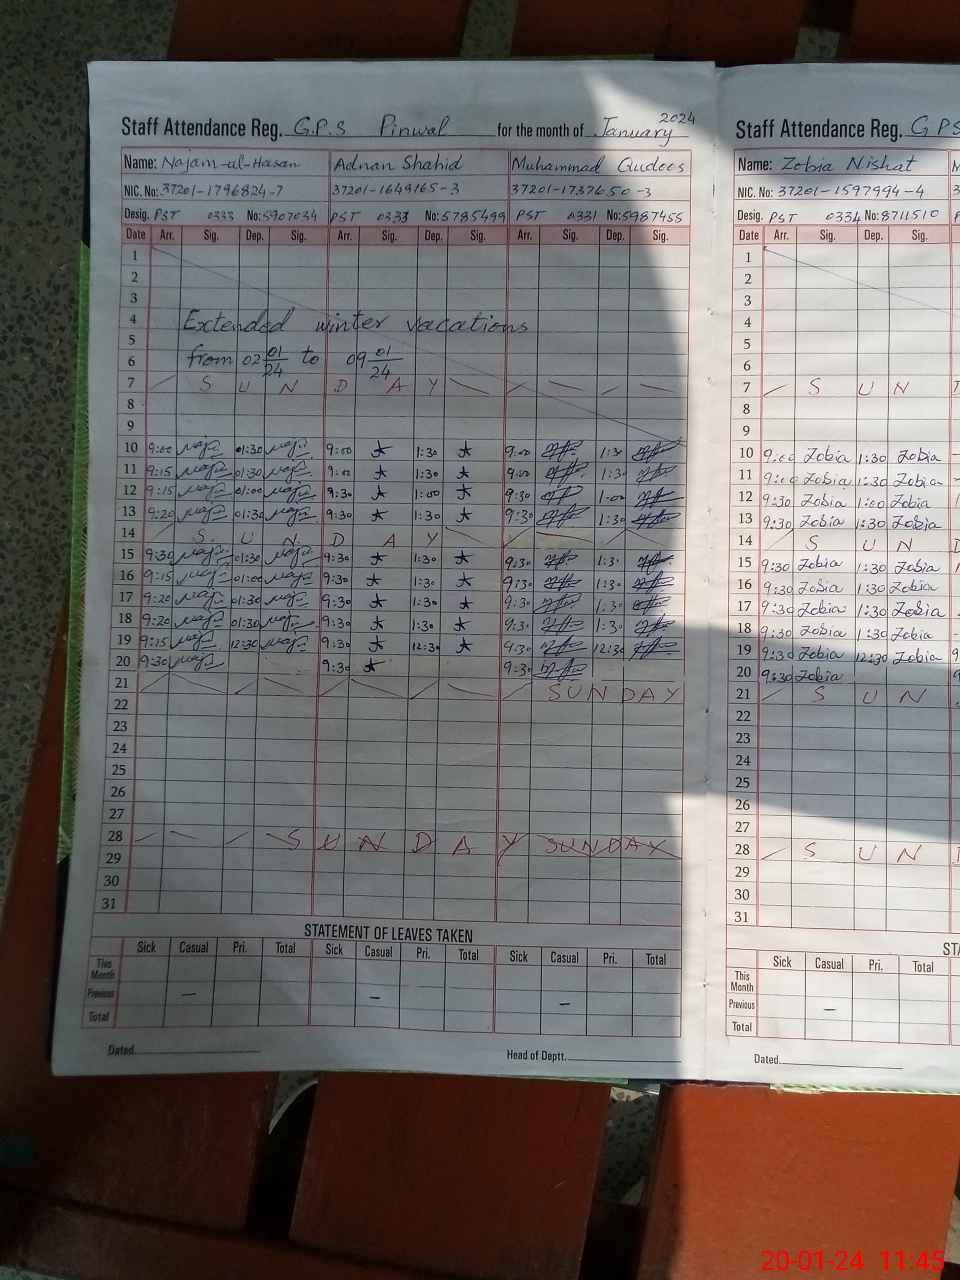 Staff Attendance Reg. G.P.S Pinwal for the month of January 2024
Name: Najam-ul-Hasan Adnan Shahid Muhammad Qudees
NIC. No: 37201-1796824-7 37201-1649165-3 37201-1737650-3
Desig. PST 0333 No: 5907034 PST 0333 No: 5785499 PST 0331 No: 5987455
Date Arr. Sig. Dep. Sig. Arr. Sig. Dep. Sig. Arr. Sig. Dep. Sig.
1
2
3
4 Extended winter vacations
5
6 from 02 01/24 to 09 01/24
7 S U N D A Y
8
9
10 9:00 01:30 9:00 1:30 9:00 1:30
11 9:15 01:30 9:00 1:30 9:00 1:30
12 9:15 01:00 9:30 1:00 9:30 1:00
13 9:20 01:30 9:30 1:30 9:30 1:30
14 S U N D A Y
15 9:30 01:30 9:30 1:30 9:30 1:30
16 9:15 01:00 9:30 1:30 9:30 1:30
17 9:20 01:30 9:30 1:30 9:30 1:30
18 9:20 01:30 9:30 1:30 9:30 1:30
19 9:15 12:30 9:30 12:30 9:30 12:30
20 9:30 9:30 9:30
21 SUNDAY
22
23
24
25
26
27
28 S U N D A Y SUNDAY
29
30
31
STATEMENT OF LEAVES TAKEN
Sick Casual Pri. Total Sick Casual Pri. Total Sick Casual Pri. Total
This Month
Previous – – –
Total
Dated Head of Deptt.
Staff Attendance Reg. GPS
Name: Zobia Nishat
NIC. No: 37201-1597994-4
Desig. PST 0334 No: 8711510
Date Arr. Sig. Dep. Sig.
1
2
3
4
5
6
7 S U N D
8
9
10 9:00 Zobia 1:30 Zobia
11 9:00 Zobia 1:30 Zobia
12 9:30 Zobia 1:00 Zobia
13 9:30 Zobia 1:30 Zobia
14 S U N D
15 9:30 Zobia 1:30 Zobia
16 9:30 Zobia 1:30 Zobia
17 9:30 Zobia 1:30 Zobia
18 9:30 Zobia 1:30 Zobia
19 9:30 Zobia 12:30 Zobia
20 9:30 Zobia
21 S U N
22
23
24
25
26
27
28 S U N D
29
30
31
STA
Sick Casual Pri. Total
This Month
Previous –
Total
Dated
20-01-24 11:45